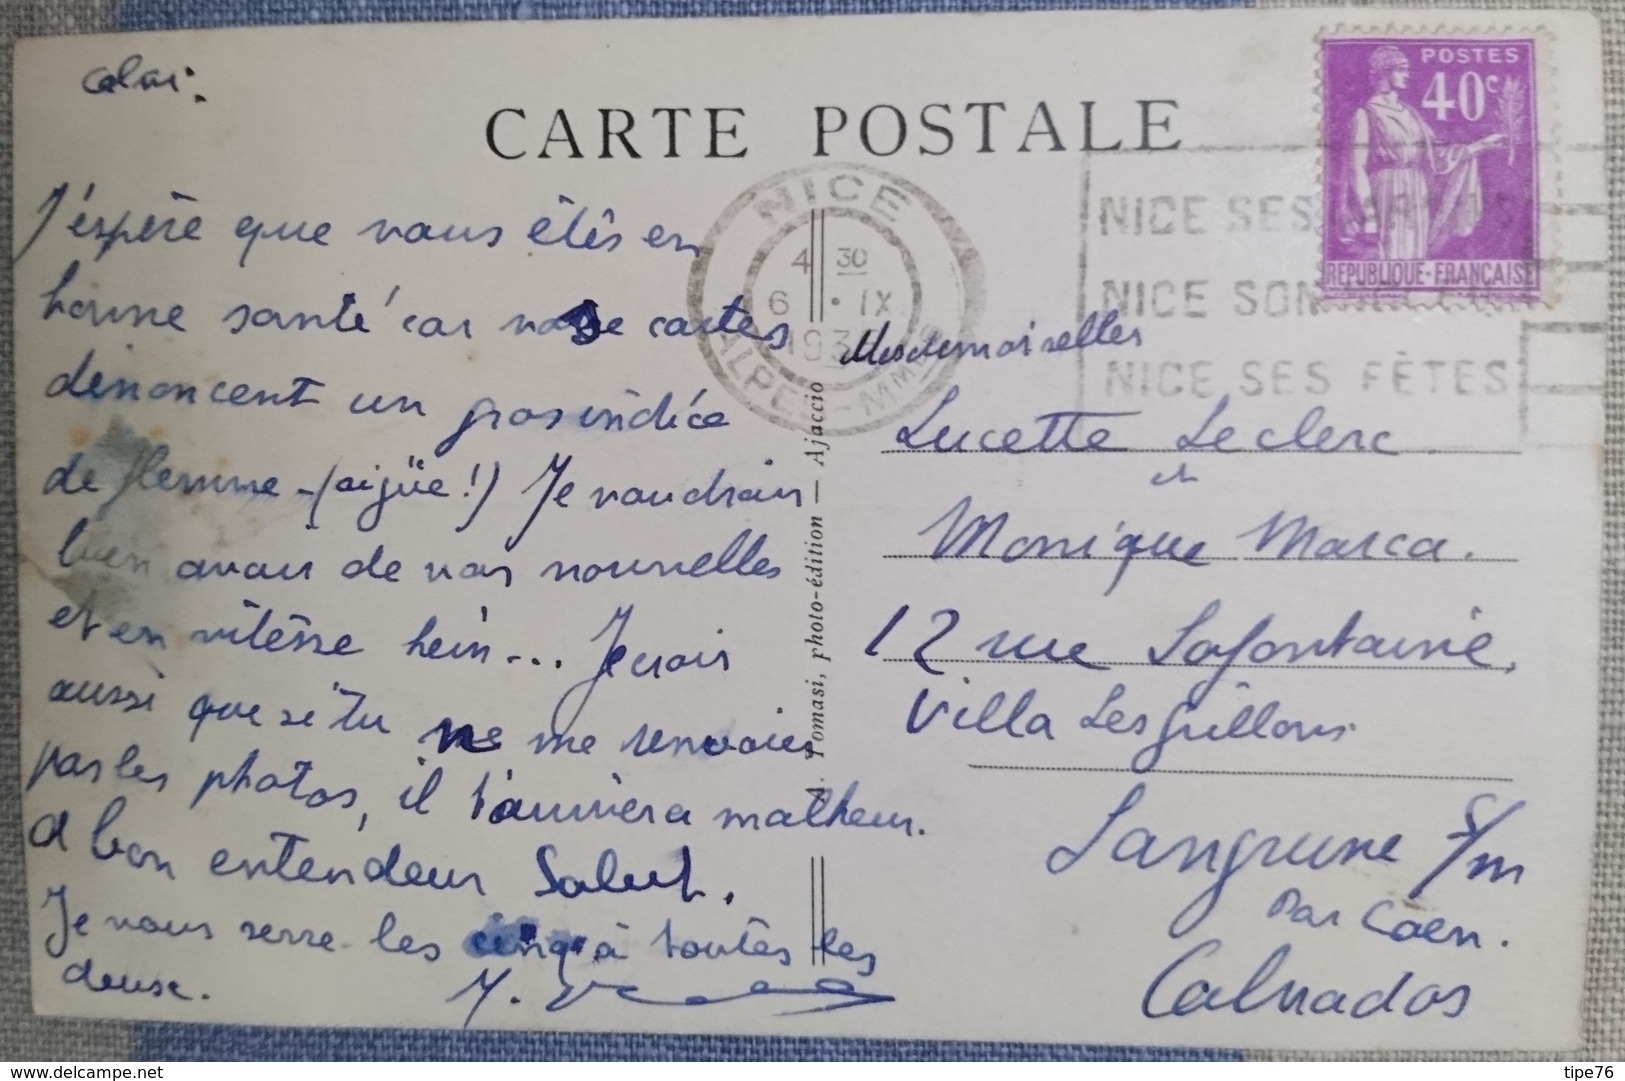 CARTE POSTALE
POSTES
40c
REPUBLIQUE-FRANÇAISE
NICE
4 30
6 • IX
ALPES-MMES
NICE SES
NICE SON
NICE SES FÊTES
J'espère que vous êtês en
bonne santé car vos cartes
dénoncent un gros indice
de flemme - (aigüe!) Je voudrais
bien avoir de vos nouvelles
et en vitêsse hein... Je crois
aussi que si tu ne me renvoies
pas les photos, il t'arrivera malheur.
A bon entendeur Salut.
Je vous serre les cinq à toutês les
deux.
A. Tomasi, photo-édition — Ajaccio
Mesdemoiselles
Lucette Leclerc
et
Monique Marca.
12 rue Lafontaine,
Villa Les Grillons
Langrune s/m
Par Caen.
Calvados
delcampe.net
tipe76